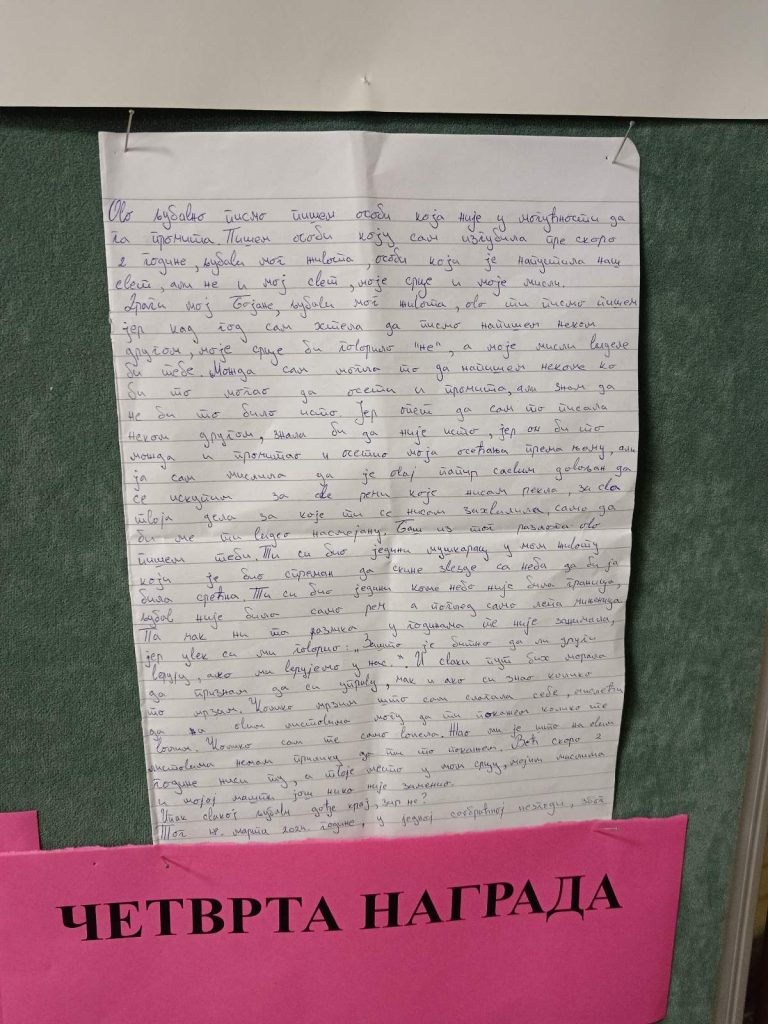 Ово љубавно писмо пишем особи која није у могућности да
га прочита. Пишем особи коју сам изгубила пре скоро
2 године, љубави мог живота, особи која је напустила наш
свет, али не и мој свет, моје срце и моје мисли.
Драги мој Бојане, љубави мог живота, ово ти писмо пишем
јер кад год сам хтела да писмо напишем неком
другом, моје срце би говорило "не", а моје мисли виделе
би тебе. Можда сам могла то да напишем некоме ко
би то могао да осети и прочита, али знам да
не би то било исто. Јер опет да сам то писала
неком другом, знала би да није исто, јер он би то
можда и прочитао и осетио моја осећања према њему, али
ја сам мислила да је овај папир сасвим довољан да
се искупим за све речи које нисам рекла, за сва
твоја дела за које ти се нисам захвалила, само да
би ме ти видео насмејану. Баш из тог разлога ово
пишем теби. Ти си био једини мушкарац у мом животу
који је био спреман да скине звезде са неба да би ја
била срећна. Ти си био једини коме небо није била граница,
љубав није била само реч а поглед само лепа чињеница
Па чак ни та разлика у годинама те није занимала,
јер увек си ми говорио: „Зашто је битно да ли други
верују, ако ми верујемо у нас." И сваки пут бих морала
да признам да си у праву, чак и ако си знао колико
то мрзим. Колико мрзим што сам слагала себе,
да на овим листовима могу да ти покажем колико те
волим. Колико сам те само волела. Жао ми је што на овим
листовима немам прилику да ти то покажем. Већ скоро 2
године ниси ту, а твоје место у мом срцу, мојим мислима
и мојој машти још нико није заменио.
Ипак свакој љубави дође крај, зар не?
Тог 18. марта 2024. године, у једној саобраћајној незгоди, због
ЧЕТВРТА НАГРАДА